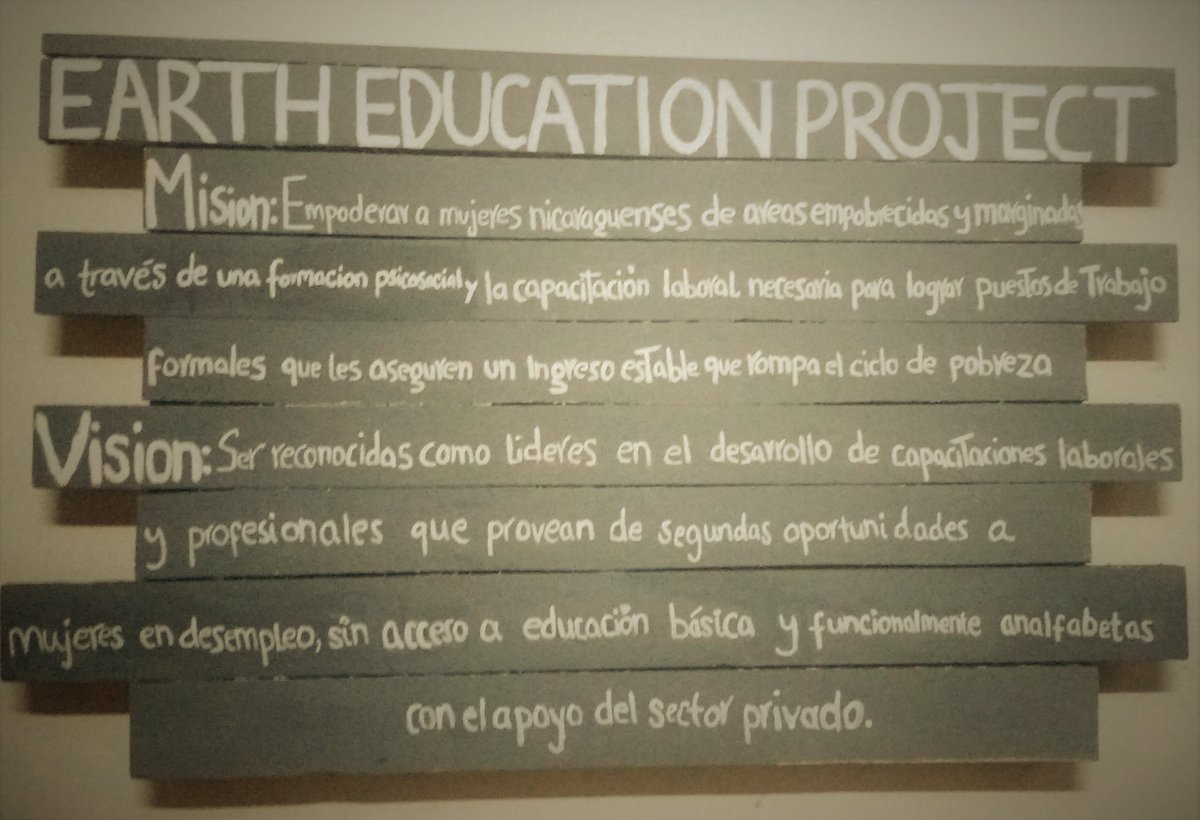 EARTH EDUCATION PROJECT
Mision: Empoderar a mujeres nicaraguenses de areas empobrecidas y marginadas
a través de una formacion psicosocial y la capacitación laboral necesaria para lograr puestos de Trabajo
formales que les aseguren un ingreso estable que rompa el ciclo de pobreza
Vision: Ser reconocidas como lideres en el desarrollo de capacitaciones laborales
y profesionales que provean de segundas oportunidades a
mujeres en desempleo, sin acceso a educación básica y funcionalmente analfabetas
con el apoyo del sector privado.